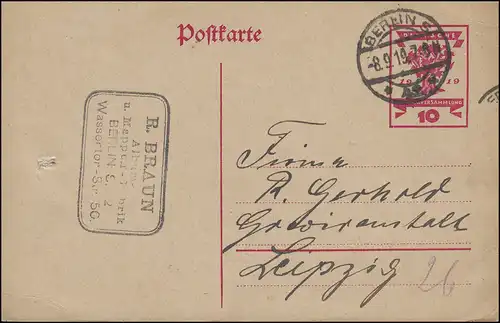 Postkarte
BERLIN S.
-8.9.19.7-8N.
* 42 *
DEUTSCHE
19 19
NATIONALVERSAMMLUNG
10
R. BRAUN
Album-
u. Mappenfabrik
BERLIN S.
Wassertor-Str. 50.
Firma
R. Gerhold
Gravieranstalt
Leipzig
26